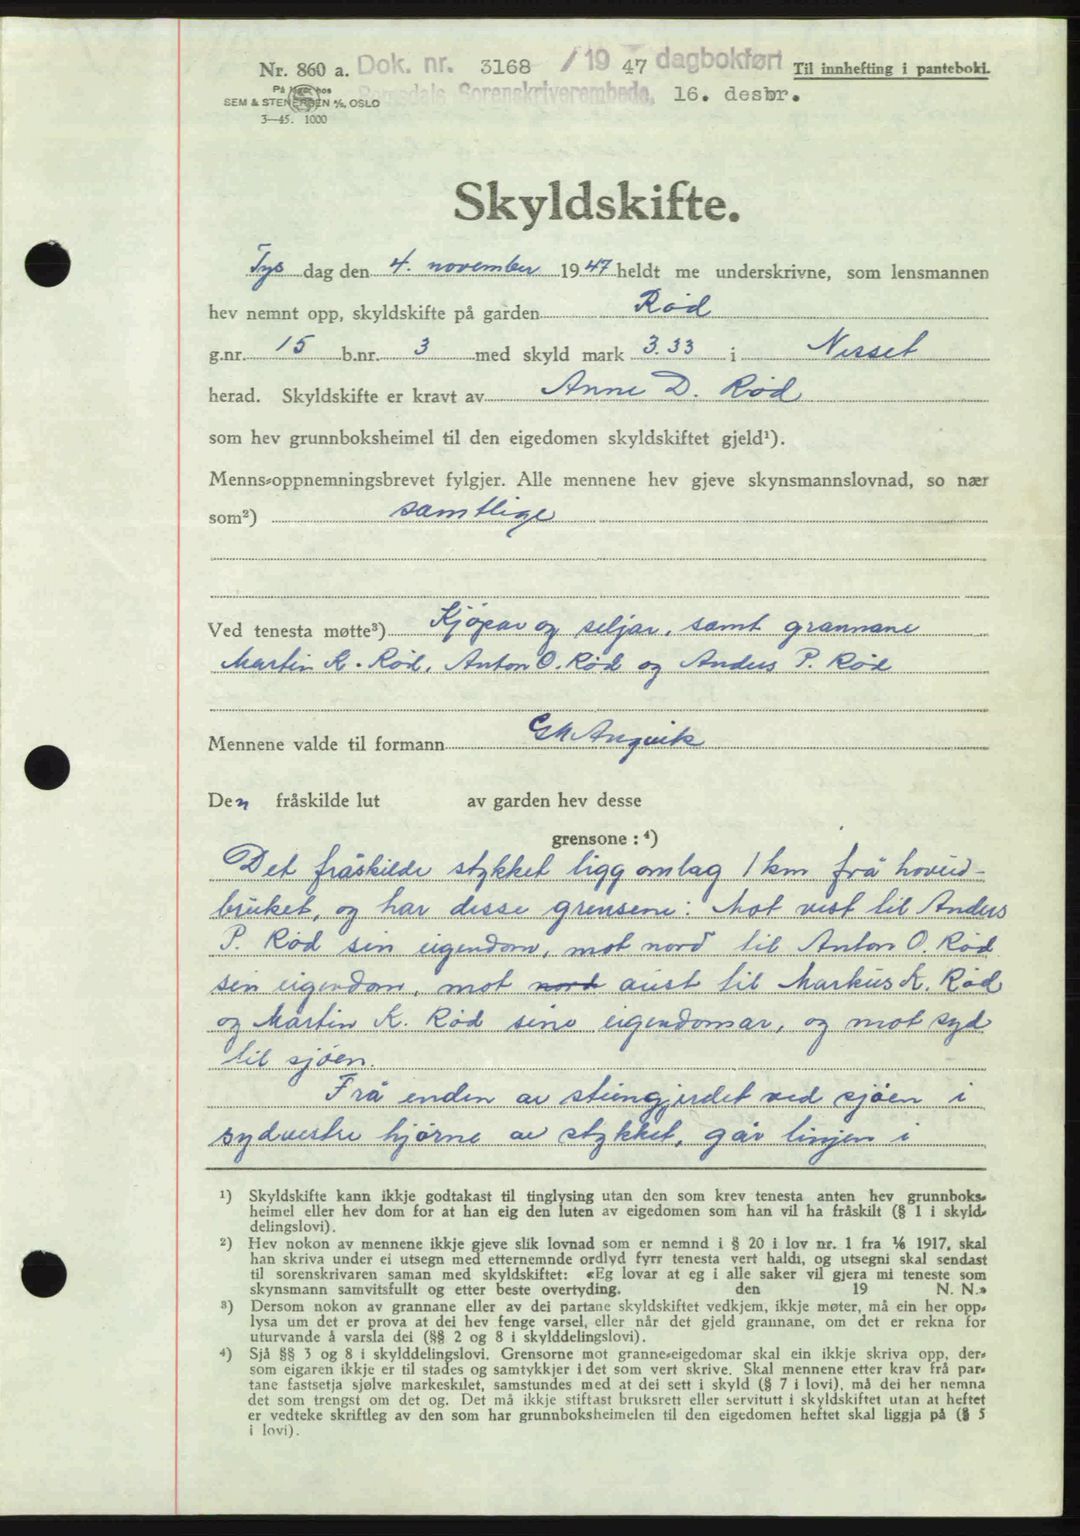 Nr. 860 a. Dok. nr. 3168 / 19 47 dagbokført Til innhefting i pantebok.
På lager hos
SEM & STENERSEN A/S, OSLO Romsdals Sorenskriverembede, 16. desbr.
3—45. 1000
Skyldskifte.
Tys dag den 4. november 1947 heldt me underskrivne, som lensmannen
hev nemnt opp, skyldskifte på garden Rød
g.nr. 15 b.nr. 3 med skyld mark 3.33 i Nesset
herad. Skyldskifte er kravt av Anne D. Rød
som hev grunnboksheimel til den eigedomen skyldskiftet gjeld¹).
Menns-oppnemningsbrevet fylgjer. Alle mennene hev gjeve skynsmannslovnad, so nær
som²) samtlige
Ved tenesta møtte³) Kjøpar og seljar, samt grannane
Martin K. Rød, Anton O. Rød og Anders P. Rød
Mennene valde til formann GM Angvik
Den fråskilde lut av garden hev desse
grensone : ⁴)
Det fråskilde stykket ligg omlag 1 km frå hovud-
bruket, og har desse grensene: Mot vest til Anders
P. Rød sin eigendom, mot nord til Anton O. Rød
sin eigendom, mot nord aust til Markus K. Rød
og Martin K. Rød sine eigendomar, og mot syd
til sjøen.
Frå enden av steingjerdet ved sjøen i
sydvestre hjørne av stykket, går linjen i
¹) Skyldskifte kann ikkje godtakast til tinglysing utan den som krev tenesta anten hev grunnboks-
heimel eller hev dom for at han eig den luten av eigedomen som han vil ha fråskilt (§ 1 i skyld-
delingslovi).
²) Hev nokon av mennene ikkje gjeve slik lovnad som er nemnd i § 20 i lov nr. 1 fra 1/6 1917, skal
han skriva under ei utsegn med etternemnde ordlyd fyrr tenesta vert haldi, og utsegni skal sendast
til sorenskrivaren saman med skyldskiftet: «Eg lovar at eg i alle saker vil gjera mi teneste som
skynsmann samvitsfullt og etter beste overtyding. den 19 N. N.»
³) Dersom nokon av grannane eller av dei partane skyldskiftet vedkjem, ikkje møter, må ein her opp-
lysa um det er prova at dei hev fenge varsel, eller når det gjeld grannane, om det er rekna for
uturvande å varsla dei (§§ 2 og 8 i skylddelingslovi).
⁴) Sjå §§ 3 og 8 i skylddelingslovi. Grensorne mot granne-eigedomar skal ein ikkje skriva opp, der-
som eigaren ikkje er til stades og samtykkjer i det som vert skrive. Skal mennene etter krav frå par-
tane fastsetja sjølve markeskilet, samstundes med at dei sett i skyld (§ 7 i lovi), må dei her nemna
det som trengst om det og. Det må ikkje stiftast bruksrett eller servitutt i skyldskiftet utan at heftet
er vedteke skriftleg av den som har grunnboksheimelen til den eigedomen heftet skal liggja på (§ 5
i lovi).